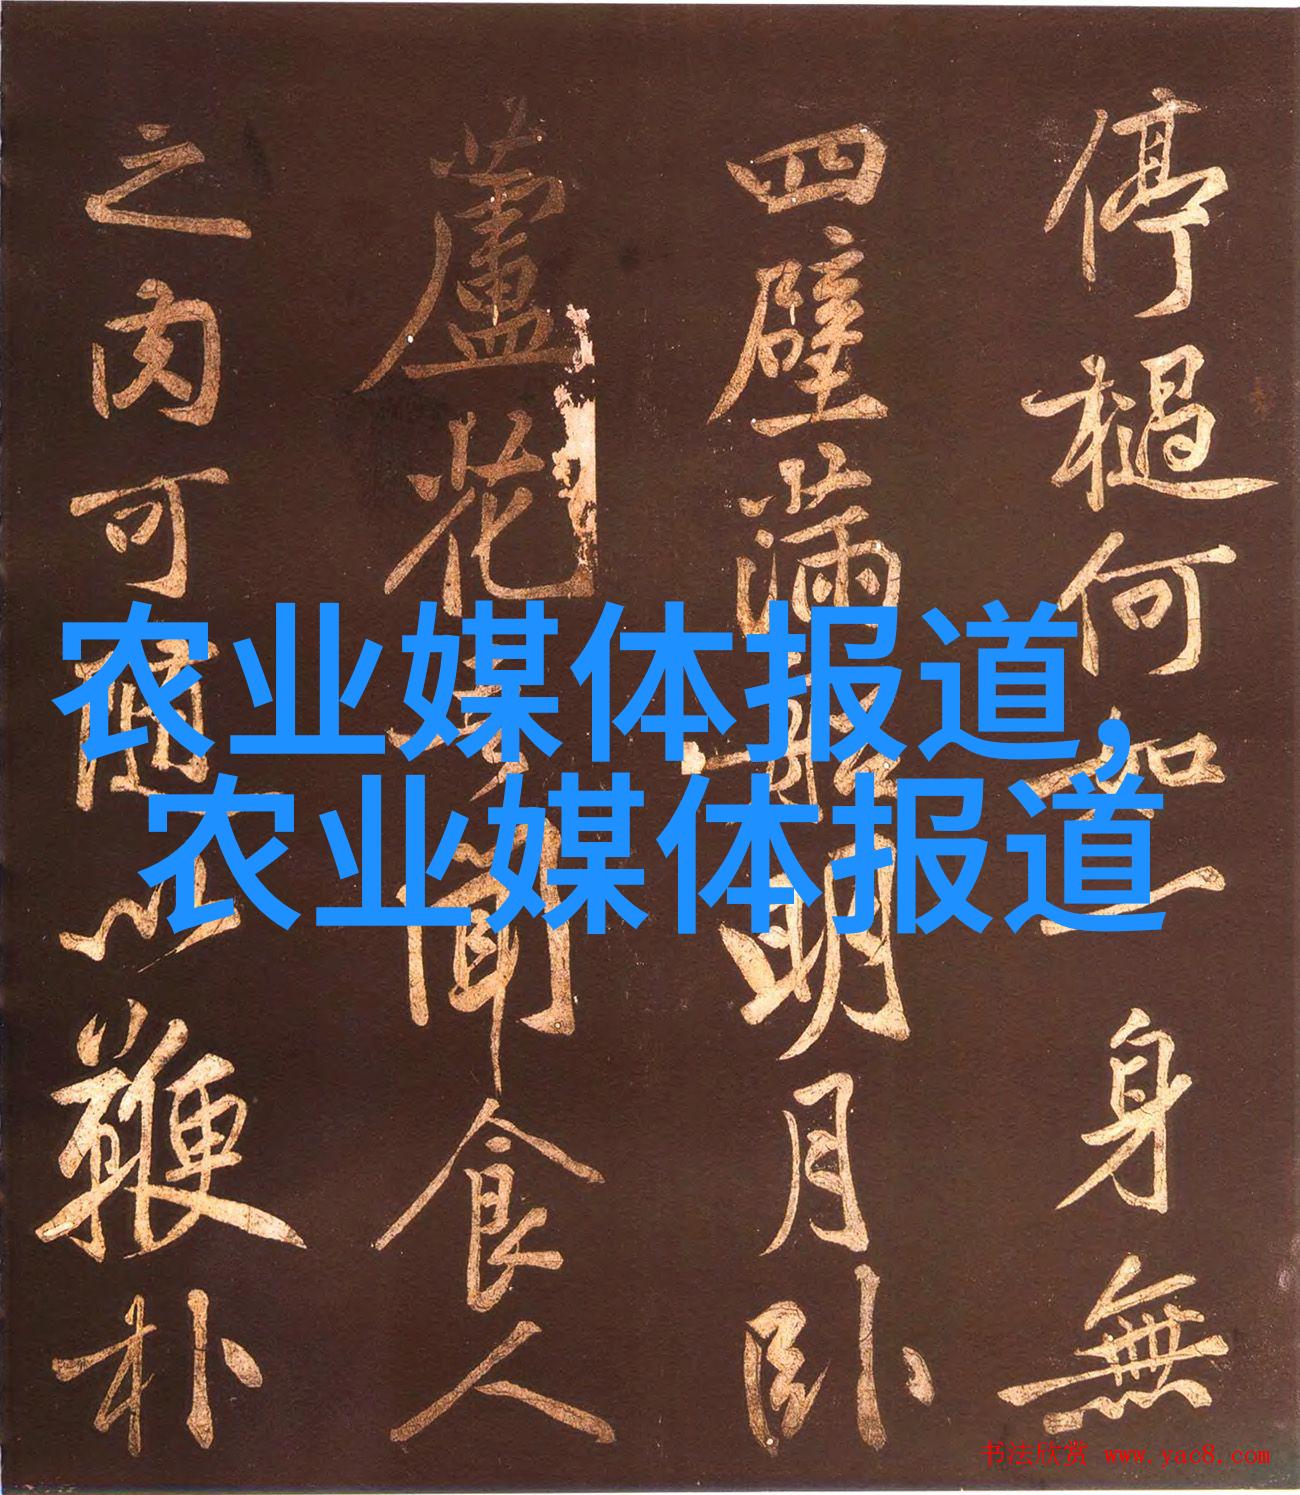 停檛何如一身無
四壁滿船明月卧
蘆花吾聞食人
之肉可隨以鞭朴
农业媒体报道,
农业媒体报道
书法欣赏 www.yac8.com